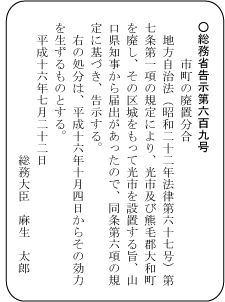 〇総務省告示第六百九号
市町の廃置分合
地方自治法（昭和二十二年法律第六十七号）第
七条第一項の規定により、光市及び熊毛郡大和町
を廃し、その区域をもって光市を設置する旨、山
口県知事から届出があったので、同条第六項の規
定に基づき、告示する。
右の処分は、平成十六年十月四日からその効力
を生ずるものとする。
平成十六年七月二十二日
総務大臣　麻生　太郎